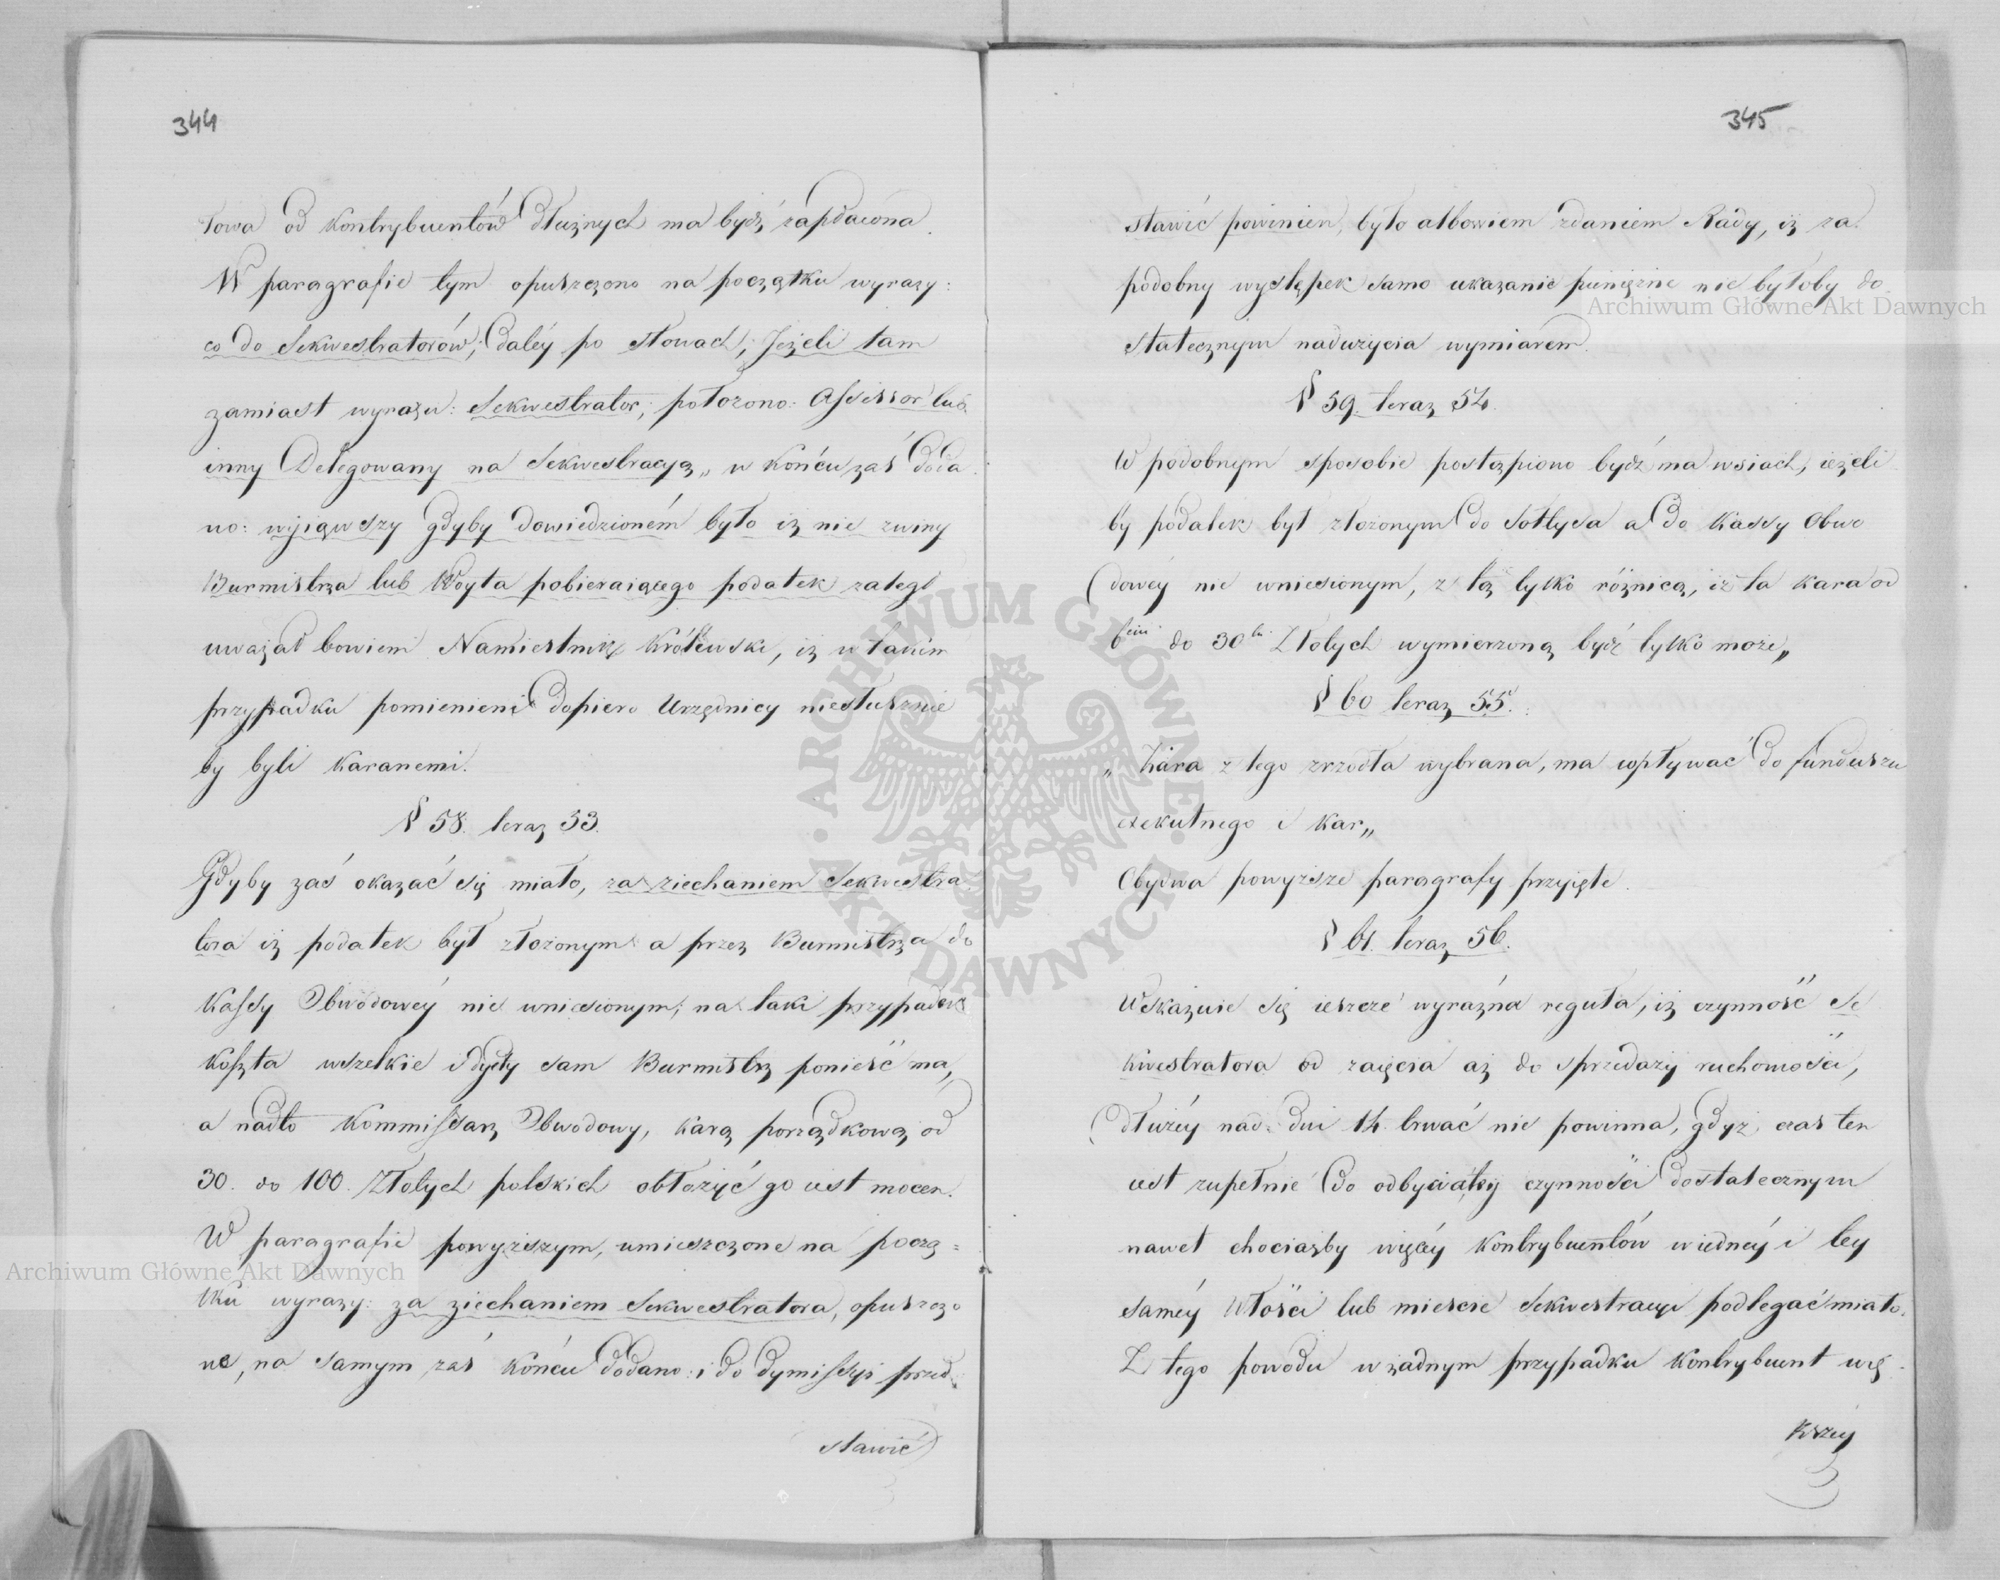 344
towa od Kontrybuentów dłużnych ma bydź zapłacona.
W paragrafie tym opuszczono na początku wyrazy:
co do Sekwestratorów; daléy po słowach; Jeżeli tam
zamiast wyrazu: Sekwestrator; położono: Assessor lub
inny Delegowany na Sekwestracyą„ w końcu zaś doda
no: wyiąwszy gdyby dowiedzioném było iż nie z winy
Burmistrza lub Woyta pobieraiącego podatek zaległ
uważał bowiem Namiestnik Królewski, iż w takim
przypadku pomienieni dopiero Urzędnicy niesłusznie
by byli karanemi.
§ 58. teraz 53.
Gdyby zaś okazać się miało, za ziechaniem Sekwestra
tora iż podatek był złożonym a przez Burmistrza do
Kassy Obwodowéy nie wniesionym; na taki przypadek
Koszta wszelkie i dyety sam Burmistrz ponieść ma,
a nadto Kommissarz Obwodowy, karą porządkową od
30. do 100. Złotych polskich obłożyć go iest mocen.
W paragrafie powyższym, umieszczone na począ=
tku wyrazy: za ziechaniem Sekwestratora, opuszczo
ne, na samym zaś końcu dodano: i do dymissyi przed
stawić
345
stawić powinien, było albowiem zdaniem Rady, iż za
podobny występek samo ukaranie pieniężne nie byłoby do
statecznym nadużycia wymiarem.
§ 59. teraz 54.
W podobnym sposobie postąpiono bydź ma wsiach, ieżeli
by podatek był złożonym do Sołtysa a do Kassy Obwo
dowéy nie wniesionym, z tą tylko różnicą, iż ta kara od
6ciu do 30tu Złotych wymierzoną bydź tylko może„
§ 60 teraz 55.
„Kara z tego zrzodła wybrana, ma wpływać do funduszu
exekutnego i kar„
Obydwa powyższe paragrafy przyięte.
§ 61. teraz 56.
Wskazuie się ieszcze wyraźna reguła, iż czynność Se
kwestratora od zaięcia aż do sprzedaży ruchomości,
dłużéy nad dni 14. trwać nie powinna, gdyż czas ten
iest zupełnie do odbycia téy czynności dostatecznym
nawet chociażby więcéy Kontrybuentów w iednéy i tey
saméy Włości lub mieście Sekwestracyi podlegać miało.
Z tego powodu w żadnym przypadku Kontrybuent wię
kszéy
Archiwum Główne Akt Dawnych
Archiwum Główne Akt Dawnych
ARCHIWUM GŁÓWNE AKT DAWNYCH